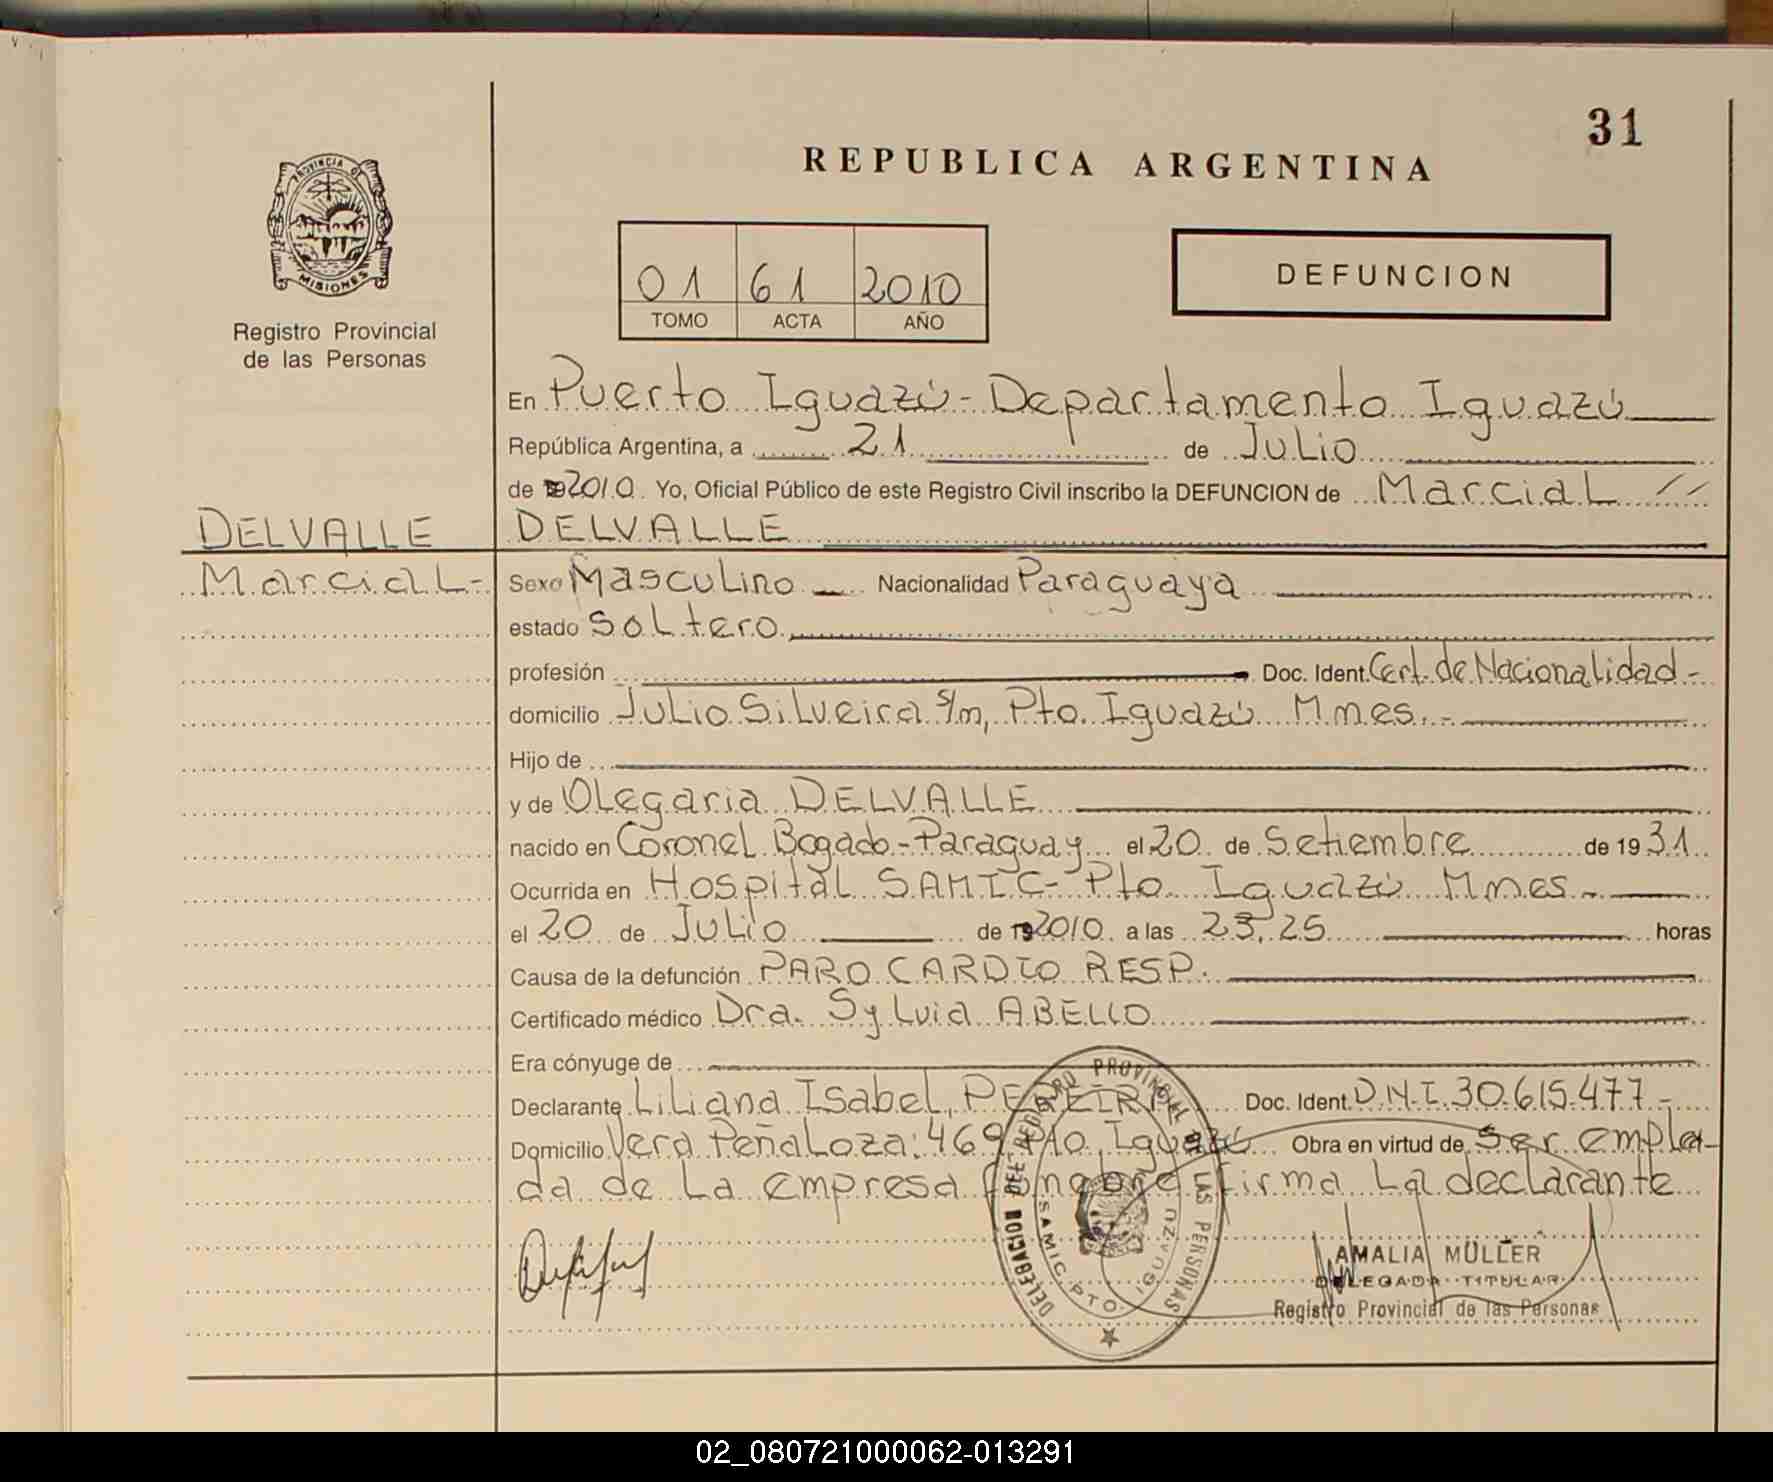 31
REPUBLICA ARGENTINA
PROVINCIA DE
MISIONES
Registro Provincial
de las Personas
01 61 2010
TOMO ACTA AÑO
DEFUNCION
En Puerto Iguazú - Departamento Iguazú
República Argentina, a 21 de Julio
de 2010. Yo, Oficial Público de este Registro Civil inscribo la DEFUNCION de Marcial //
DELVALLE
DELVALLE
Marcial-
Sexo Masculino Nacionalidad Paraguaya
estado Soltero
profesión Doc. Ident. Cert. de Nacionalidad-
domicilio Julio Silveira s/n, Pto. Iguazú Mnes.-
Hijo de
y de Olegaria DELVALLE
nacido en Coronel Bogado-Paraguay el 20 de Setiembre de 1931
Ocurrida en Hospital SAMIC- Pto Iguazú Mnes-
el 20 de Julio de 2010 a las 23,25 horas
Causa de la defunción PARO CARDIO RESP.
Certificado médico Dra. Sylvia ABELLO
Era cónyuge de
Declarante Liliana Isabel PEREIRA Doc. Ident. D.N.I. 30.615.477-
Domicilio Vera Peñaloza: 469 Pto. Iguazú Obra en virtud de ser emplea-
da de La empresa funebre firma La declarante
DELEGACION DEL REGISTRO PROVINCIAL DE LAS PERSONAS
SAMIC. PTO. IGUAZU
AMALIA MÜLLER
DELEGADA TITULAR
Registro Provincial de las Personas
02_080721000062-013291